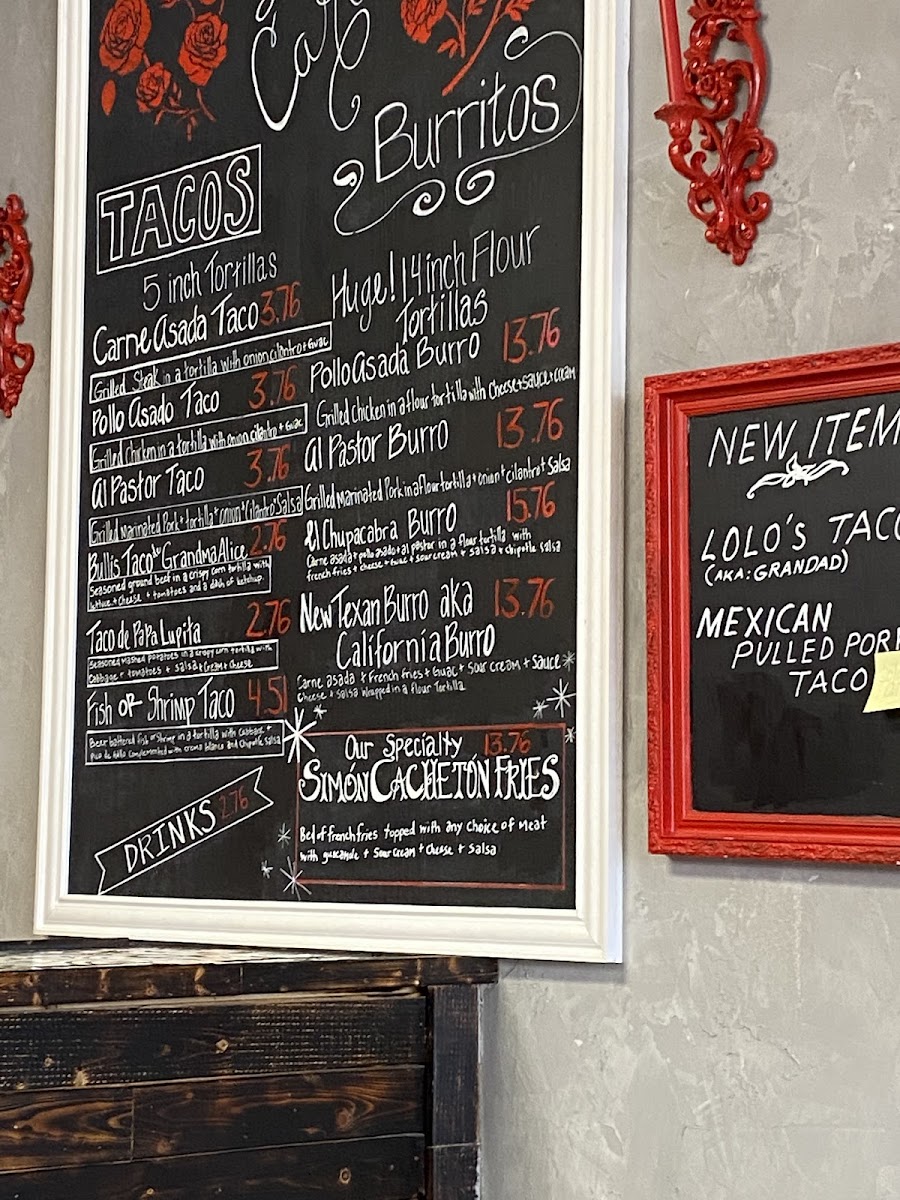 Café
TACOS
5 inch Tortillas
Carne Asada Taco 3.76
Grilled Steak in a tortilla with onion, cilantro + Guac
Pollo Asado Taco 3.76
Grilled chicken in a tortilla with onion, cilantro + Guac
Al Pastor Taco 3.76
Grilled Marinated Pork + tortilla + onion + Cilantro + Salsa
Bullis Taco de Grandma Alice 2.76
Seasoned ground beef in a crispy corn tortilla with
lettuce + Cheese + tomatoes and a dash of ketchup.
Taco de Papa Lupita 2.76
Seasoned Mashed potatoes in a crispy corn tortilla with
Cabbage + tomatoes + Salsa + Cream + Cheese
Fish or Shrimp Taco 4.51
Beer battered fish or Shrimp in a tortilla with Cabbage +
Pico de Gallo Complemented with crema blanca and Chipotle Salsa
DRINKS 2.76
Burritos
Huge! 14 inch Flour
Tortillas
Pollo Asada Burro 13.76
Grilled chicken in a flour tortilla with Cheese + Sauce + Cream
Al Pastor Burro 13.76
Grilled Marinated Pork in a flour tortilla + onion + cilantro + Salsa
El Chupacabra Burro 15.76
Carne asada + pollo asado + al pastor in a flour tortilla with
french fries + cheese + Guac + sour cream + salsa + chipotle salsa
New Texan Burro aka 13.76
California Burro
Carne asada + French Fries + Guac + Sour Cream + Sauce
Cheese + Salsa Wrapped in a flour Tortilla
Our Specialty 13.76
SIMON CACHETÓN FRIES
Bed of french fries topped with any Choice of Meat
with guacamole + Sour Cream + Cheese + Salsa
NEW ITEM
LOLO'S TACO
(AKA: GRANDAD)
MEXICAN
PULLED PORK
TACO